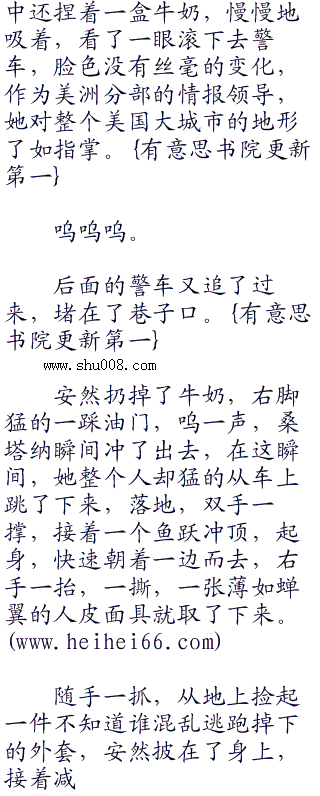 中还捏着一盒牛奶，慢慢地
吸着，看了一眼滚下去警
车，脸色没有丝毫的变化，
作为美洲分部的情报领导，
她对整个美国大城市的地形
了如指掌。{有意思书院更新
第一}
呜呜呜。
后面的警车又追了过
来，堵在了巷子口。{有意思
书院更新第一}
www.shu008.com
安然扔掉了牛奶，右脚
猛的一踩油门，呜一声，桑
塔纳瞬间冲了出去，在这瞬
间，她整个人却猛的从车上
跳了下来，落地，双手一
撑，接着一个鱼跃冲顶，起
身，快速朝着一边而去，右
手一抬，一撕，一张薄如蝉
翼的人皮面具就取了下来。
(www.heihei66.com)
随手一抓，从地上捡起
一件不知道谁混乱逃跑掉下
的外套，安然披在了身上，
接着减